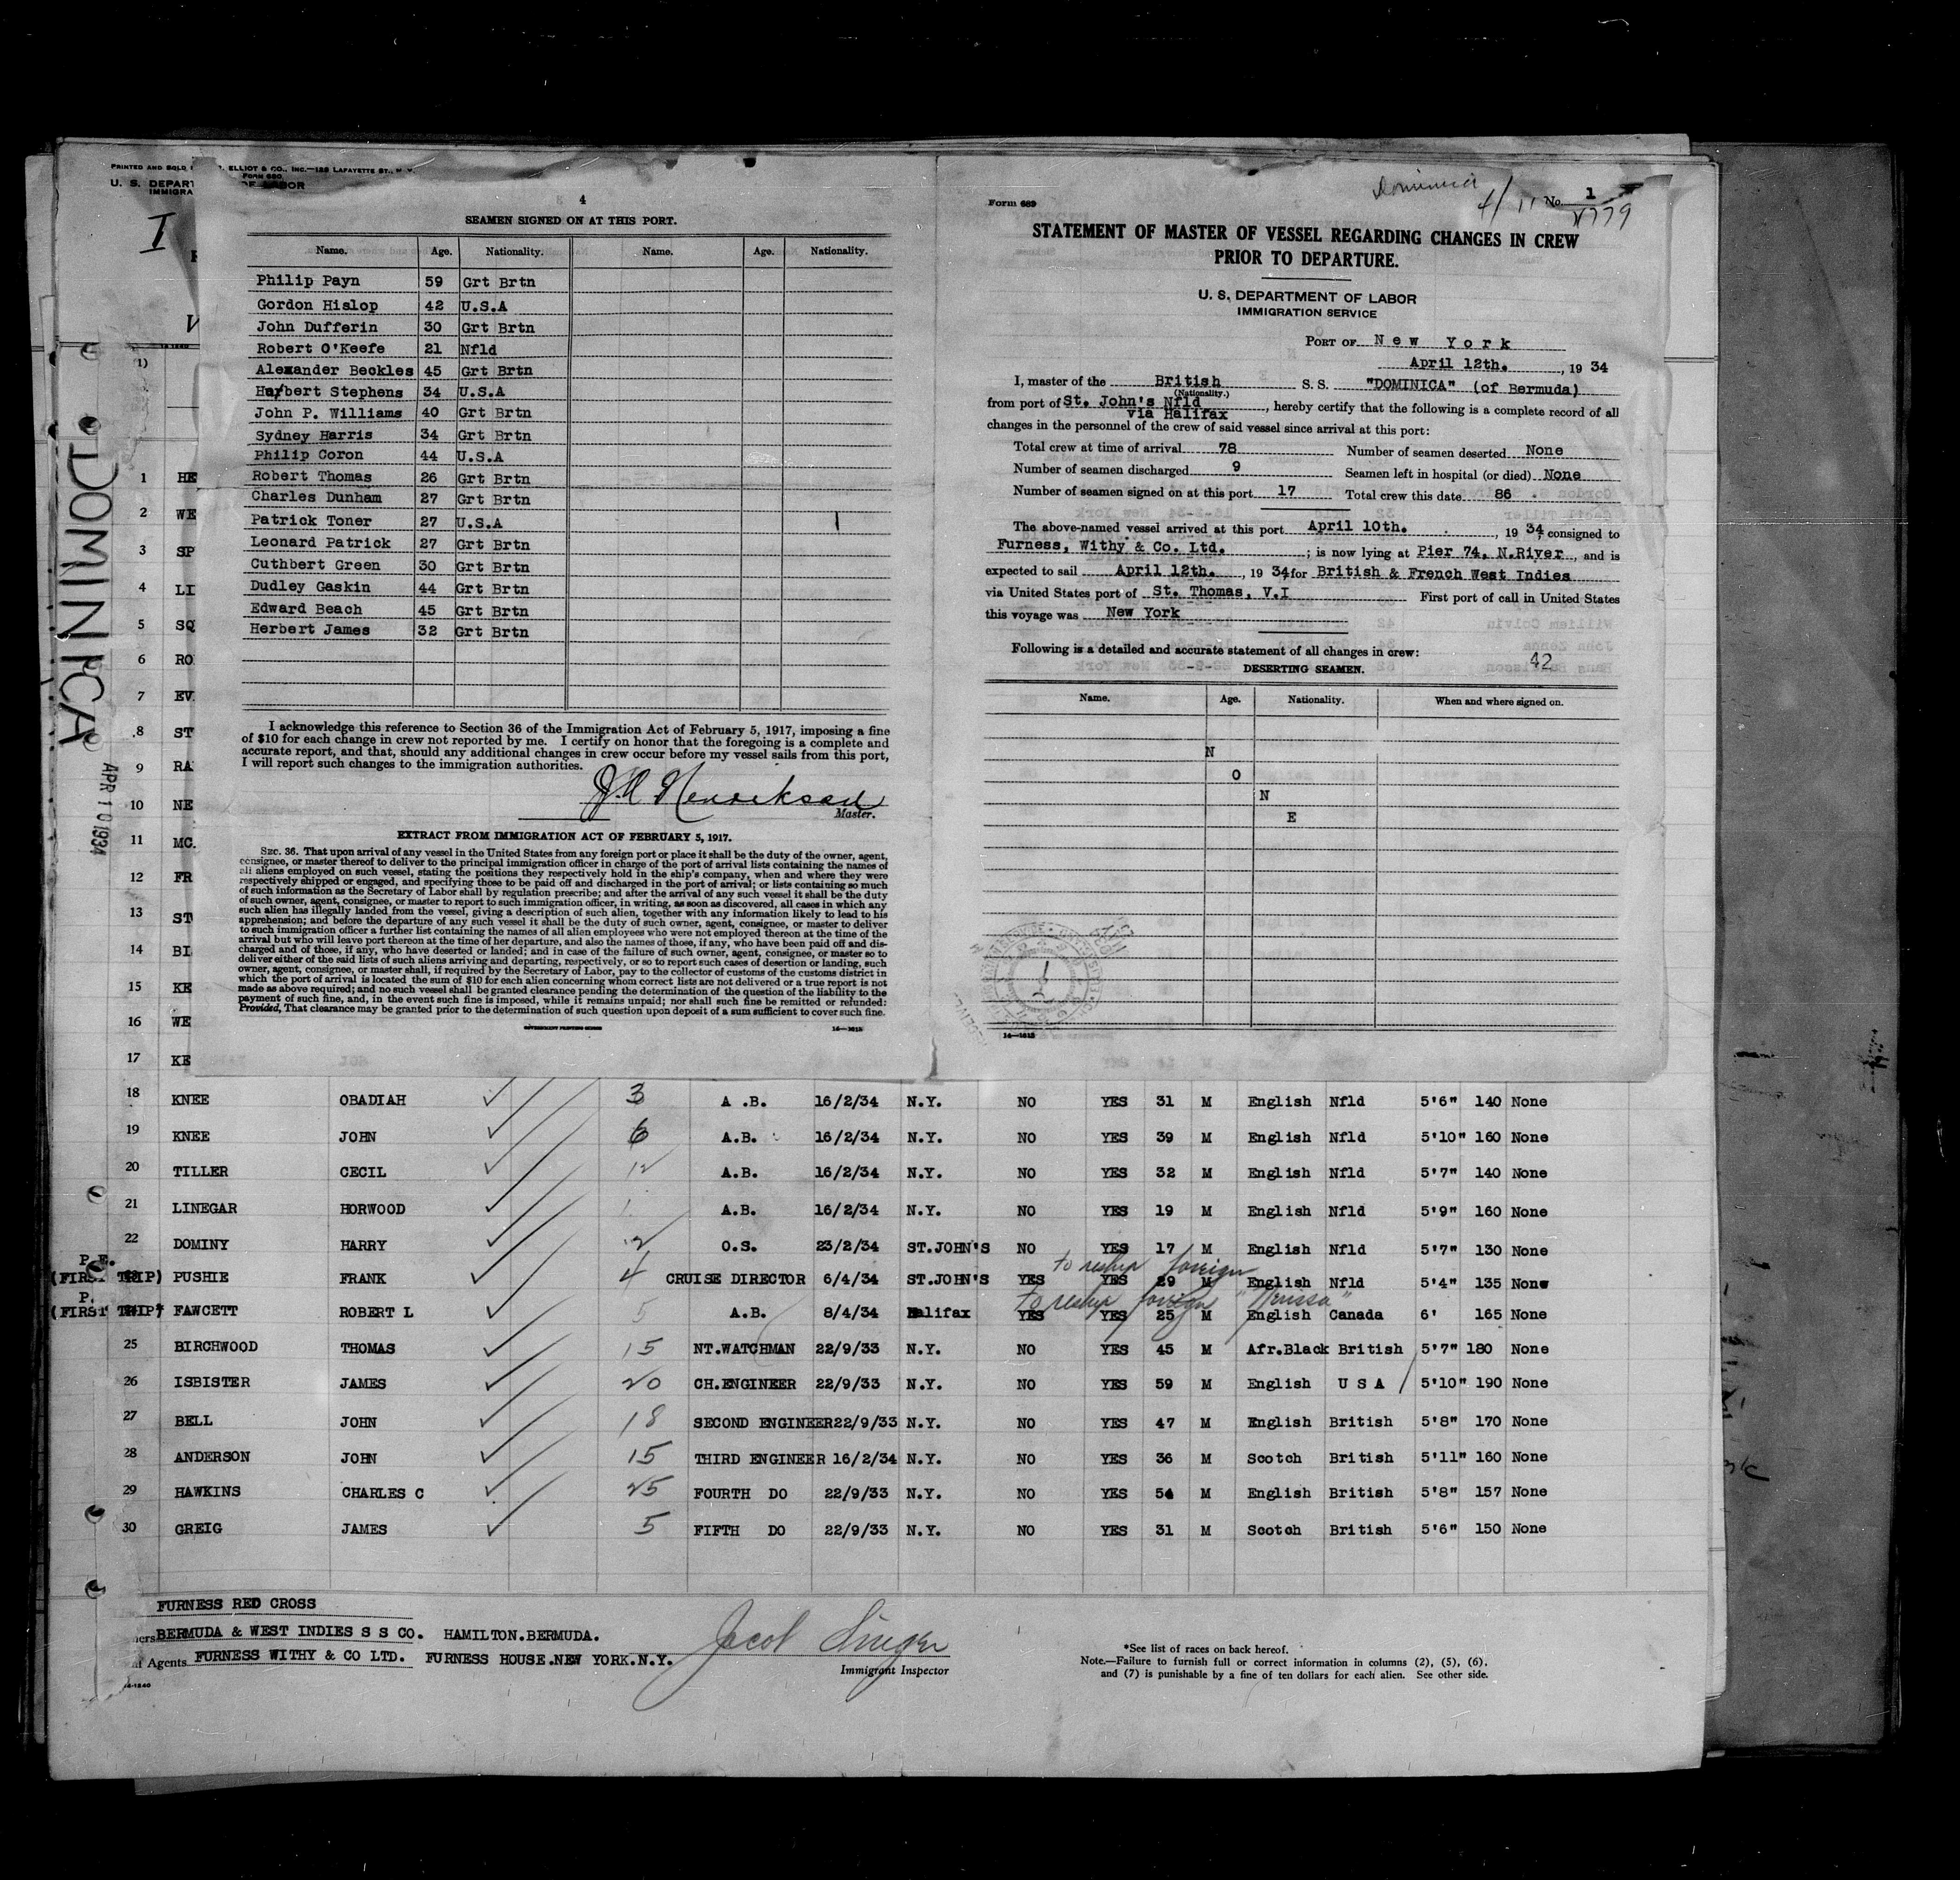 PRINTED AND SOLD
ELLIOT & CO., INC.—135 LAFAYETTE ST.,
FORM 680
U. S. DEPART
OF LABOR
IMMIGRA
I
DOMINICA
APR 10 1934
4
SEAMEN SIGNED ON AT THIS PORT.
Name. Age. Nationality. Name. Age. Nationality.
Philip Payn 59 Grt Brtn
Gordon Hislop 42 U.S.A
John Dufferin 30 Grt Brtn
Robert O'Keefe 21 Nfld
Alexander Beckles 45 Grt Brtn
Herbert Stephens 34 U.S.A
John P. Williams 40 Grt Brtn
Sydney Harris 34 Grt Brtn
Philip Coron 44 U.S.A
Robert Thomas 26 Grt Brtn
Charles Dunham 27 Grt Brtn
Patrick Toner 27 U.S.A 1
Leonard Patrick 27 Grt Brtn
Cuthbert Green 30 Grt Brtn
Dudley Gaskin 44 Grt Brtn
Edward Beach 45 Grt Brtn
Herbert James 32 Grt Brtn
I acknowledge this reference to Section 36 of the Immigration Act of February 5, 1917, imposing a fine
of $10 for each change in crew not reported by me. I certify on honor that the foregoing is a complete and
accurate report, and that, should any additional changes in crew occur before my vessel sails from this port,
I will report such changes to the immigration authorities.
Master.
EXTRACT FROM IMMIGRATION ACT OF FEBRUARY 5, 1917.
SEC. 36. That upon arrival of any vessel in the United States from any foreign port or place it shall be the duty of the owner, agent,
consignee, or master thereof to deliver to the principal immigration officer in charge of the port of arrival lists containing the names of
all aliens employed on such vessel, stating the positions they respectively hold in the ship's company, when and where they were
respectively shipped or engaged, and specifying those to be paid off and discharged in the port of arrival; or lists containing so much
of such information as the Secretary of Labor shall by regulation prescribe; and after the arrival of any such vessel it shall be the duty
of such owner, agent, consignee, or master to report to such immigration officer, in writing, as soon as discovered, all cases in which any
such alien has illegally landed from the vessel, giving a description of such alien, together with any information likely to lead to his
apprehension; and before the departure of any such vessel it shall be the duty of such owner, agent, consignee, or master to deliver
to such immigration officer a further list containing the names of all alien employees who were not employed thereon at the time of the
arrival but who will leave port thereon at the time of her departure, and also the names of those, if any, who have been paid off and dis-
charged and of those, if any, who have deserted or landed; and in case of the failure of such owner, agent, consignee, or master so to
deliver either of the said lists of such aliens arriving and departing, respectively, or so to report such cases of desertion or landing, such
owner, agent, consignee, or master shall, if required by the Secretary of Labor, pay to the collector of customs of the customs district in
which the port of arrival is located the sum of $10 for each alien concerning whom correct lists are not delivered or a true report is not
made as above required; and no such vessel shall be granted clearance pending the determination of the question of the liability to the
payment of such fine, and, in the event such fine is imposed, while it remains unpaid; nor shall such fine be remitted or refunded:
Provided, That clearance may be granted prior to the determination of such question upon deposit of a sum sufficient to cover such fine.
GOVERNMENT PRINTING OFFICE
Form 689
Dominica
4/11 No. 1
STATEMENT OF MASTER OF VESSEL REGARDING CHANGES IN CREW
PRIOR TO DEPARTURE.
U. S. DEPARTMENT OF LABOR
IMMIGRATION SERVICE
PORT OF New York
April 12th. , 19 34
I, master of the British S. S. "DOMINICA" (of Bermuda)
(Nationality.)
from port of St. John's Nfld , hereby certify that the following is a complete record of all
via Halifax
changes in the personnel of the crew of said vessel since arrival at this port:
Total crew at time of arrival 78 Number of seamen deserted None
Number of seamen discharged 9 Seamen left in hospital (or died) None
Number of seamen signed on at this port 17 Total crew this date 86
The above-named vessel arrived at this port April 10th. , 19 34 consigned to
Furness, Withy & Co. Ltd. ; is now lying at Pier 74, N.River , and is
expected to sail April 12th. , 19 34 for British & French West Indies
via United States port of St. Thomas, V.I First port of call in United States
this voyage was New York
Following is a detailed and accurate statement of all changes in crew:
42
DESERTING SEAMEN.
Name. Age. Nationality. When and where signed on.
N
O
N
E
1)
1 HE
2 WE
3 SP
4 LI
5 SQ
6 RO
7 EV
8 ST
9 RA
10 NE
11 MC.
12 FR
13 ST
14 BL
15 KE
16 WE
17 KE
18 KNEE OBADIAH 3 A .B. 16/2/34 N.Y. NO YES 31 M English Nfld 5'6" 140 None
19 KNEE JOHN 6 A.B. 16/2/34 N.Y. NO YES 39 M English Nfld 5'10" 160 None
20 TILLER CECIL 12 A.B. 16/2/34 N.Y. NO YES 32 M English Nfld 5'7" 140 None
21 LINEGAR HORWOOD 1 A.B. 16/2/34 N.Y. NO YES 19 M English Nfld 5'9" 160 None
22 DOMINY HARRY O.S. 23/2/34 ST.JOHN'S NO YES 17 M English Nfld 5'7" 130 None
P.E. to reship foreign
(FIRST TRIP) PUSHIE FRANK 4 CRUISE DIRECTOR 6/4/34 ST.JOHN'S YES YES 29 M English Nfld 5'4" 135 None
P. to reship foreign "Nerissa"
(FIRST TRIP) FAWCETT ROBERT L 5 A.B. 8/4/34 Halifax YES YES 25 M English Canada 6' 165 None
25 BIRCHWOOD THOMAS 15 NT.WATCHMAN 22/9/33 N.Y. NO YES 45 M Afr.Black British 5'7" 180 None
26 ISBISTER JAMES 20 CH.ENGINEER 22/9/33 N.Y. NO YES 59 M English U S A 5'10" 190 None
27 BELL JOHN 18 SECOND ENGINEER 22/9/33 N.Y. NO YES 47 M English British 5'8" 170 None
28 ANDERSON JOHN 15 THIRD ENGINEER 16/2/34 N.Y. NO YES 36 M Scotch British 5'11" 160 None
29 HAWKINS CHARLES C 25 FOURTH DO 22/9/33 N.Y. NO YES 54 M English British 5'8" 157 None
30 GREIG JAMES 5 FIFTH DO 22/9/33 N.Y. NO YES 31 M Scotch British 5'6" 150 None
FURNESS RED CROSS
BERMUDA & WEST INDIES S S CO. HAMILTON.BERMUDA.
Agents FURNESS WITHY & CO LTD. FURNESS HOUSE.NEW YORK.N.Y.
Jacob
Immigrant Inspector
*See list of races on back hereof.
Note.—Failure to furnish full or correct information in columns (2), (5), (6),
and (7) is punishable by a fine of ten dollars for each alien. See other side.